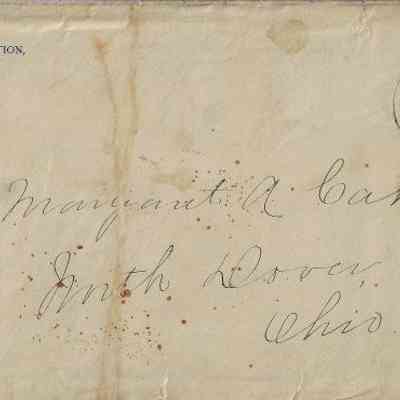 TION,
Margaret A Ca
North Dover,
Ohio.